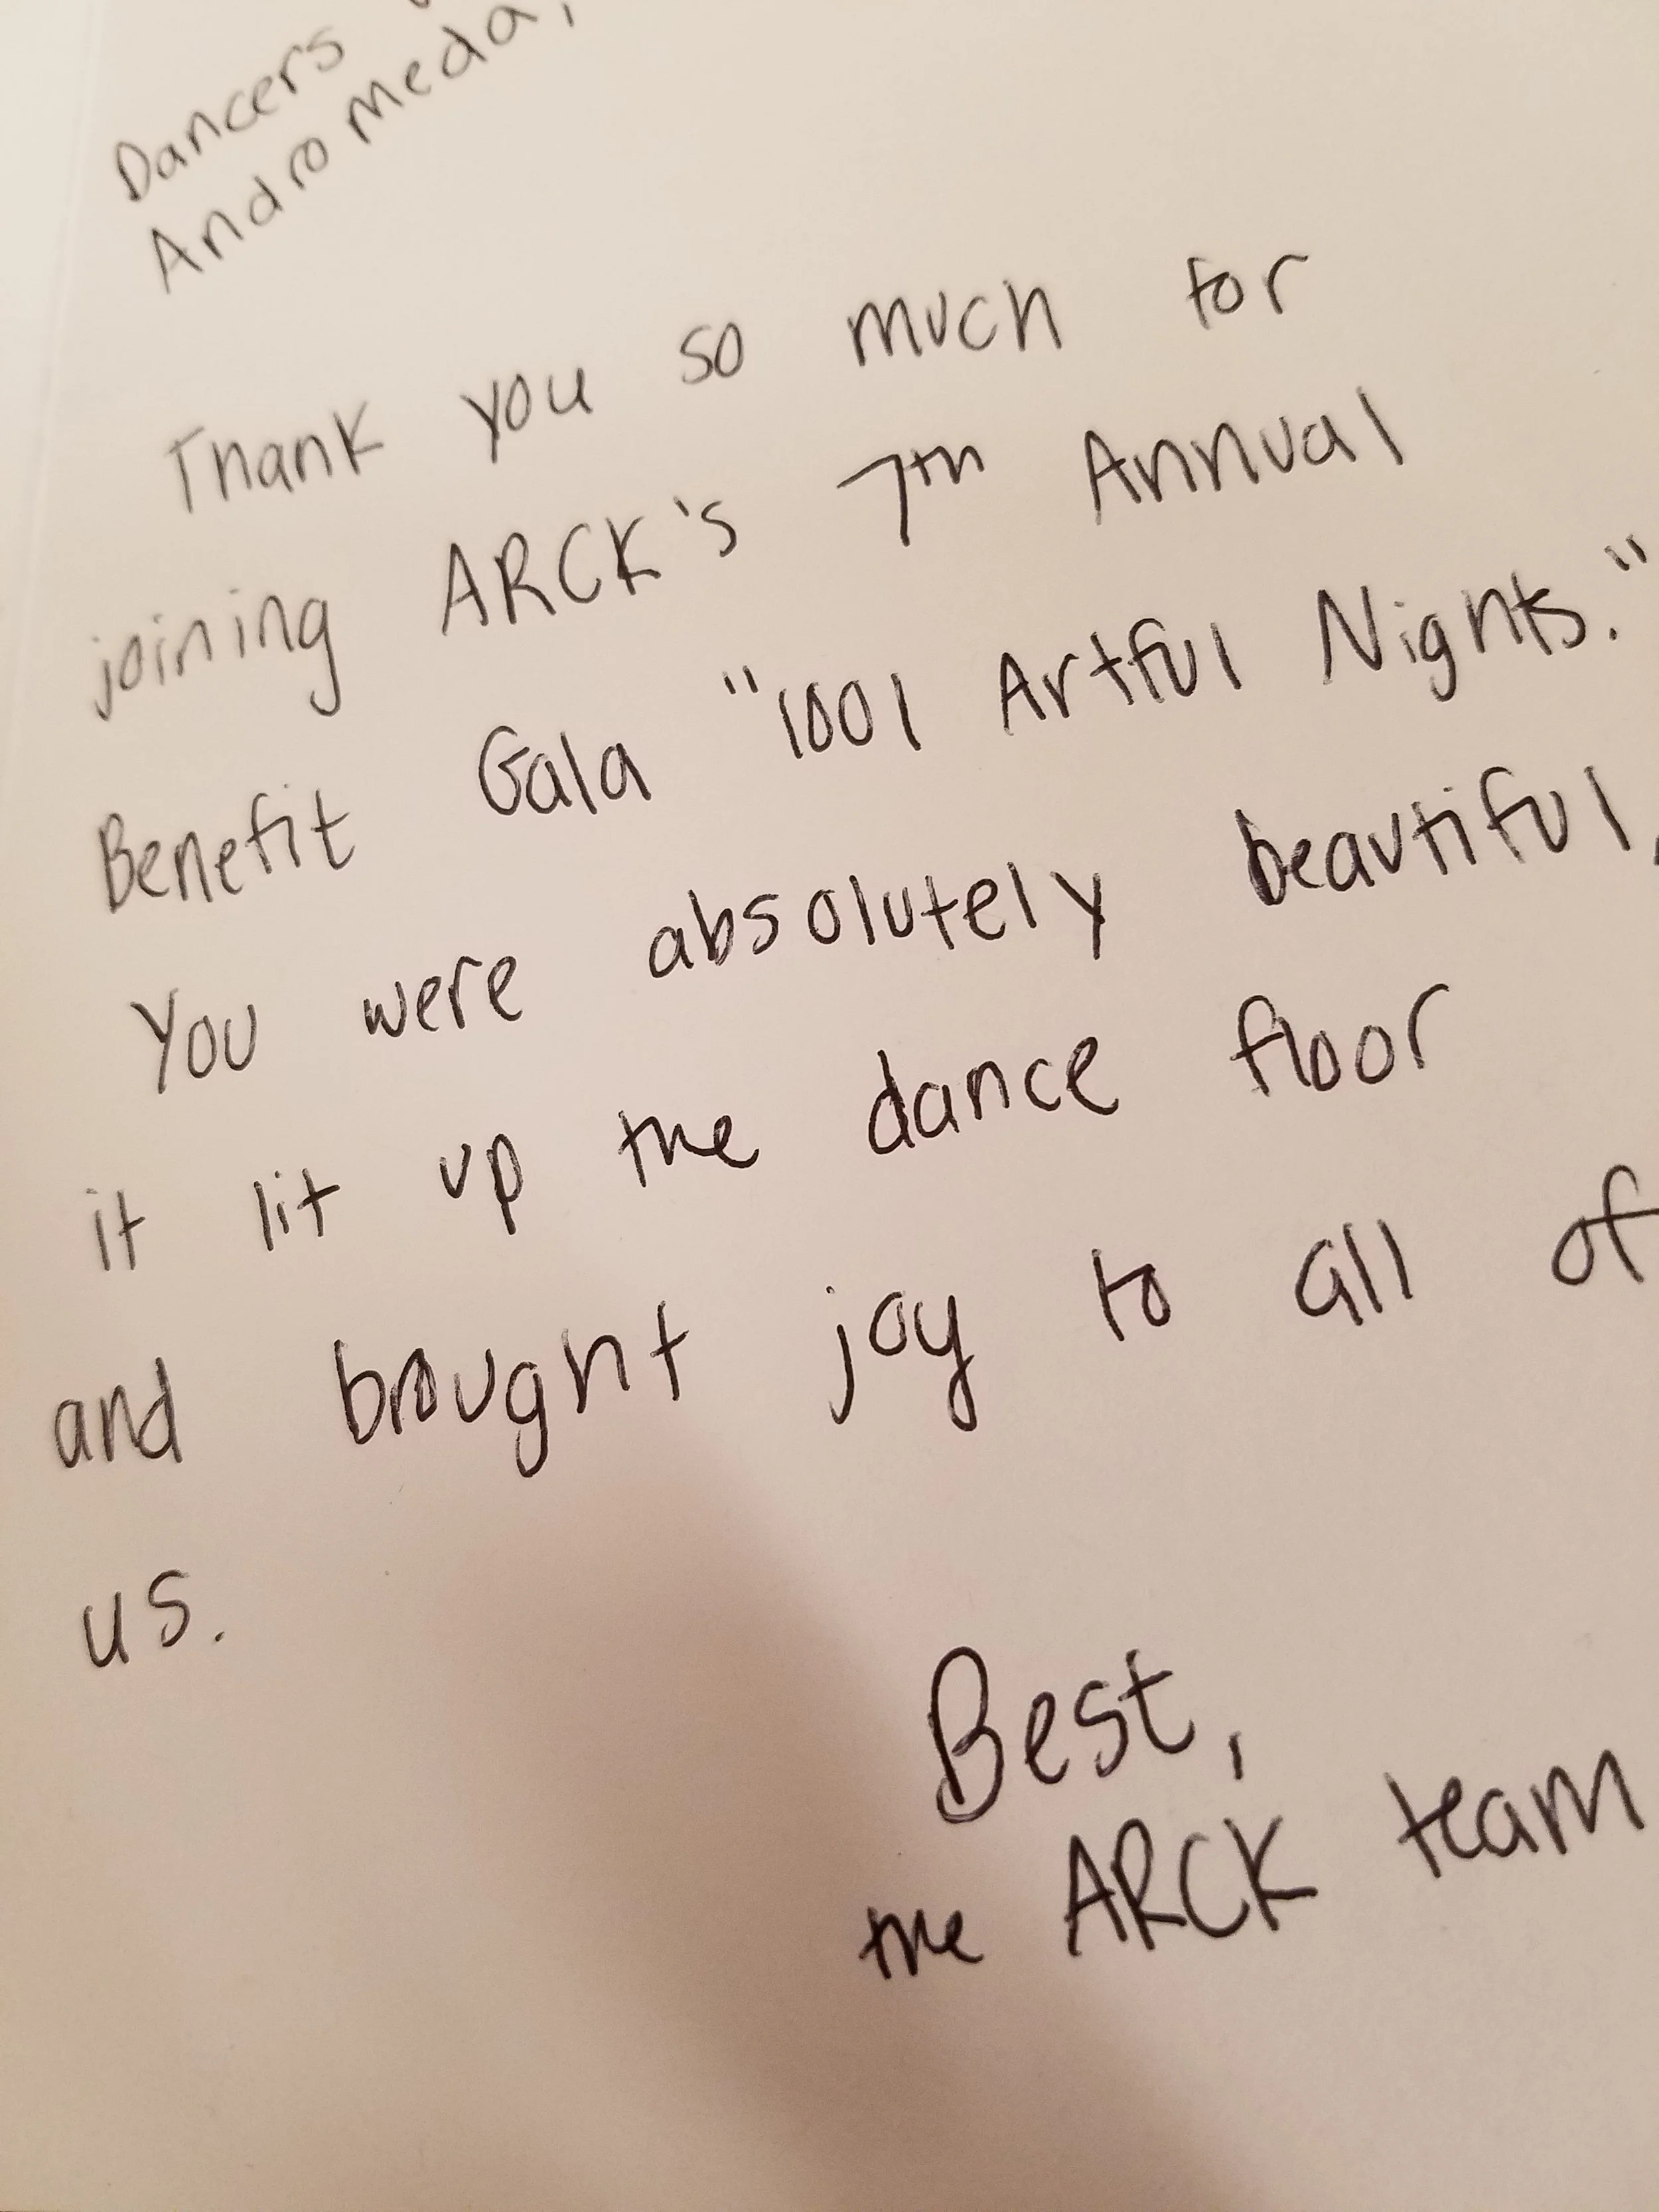 Dancers
Andromeda,
Thank you so much for
joining ARCK's 7th Annual
Benefit Gala "1001 Artful Nights."
You were absolutely beautiful,
it lit up the dance floor
and brought joy to all of
us.
Best,
the ARCK team